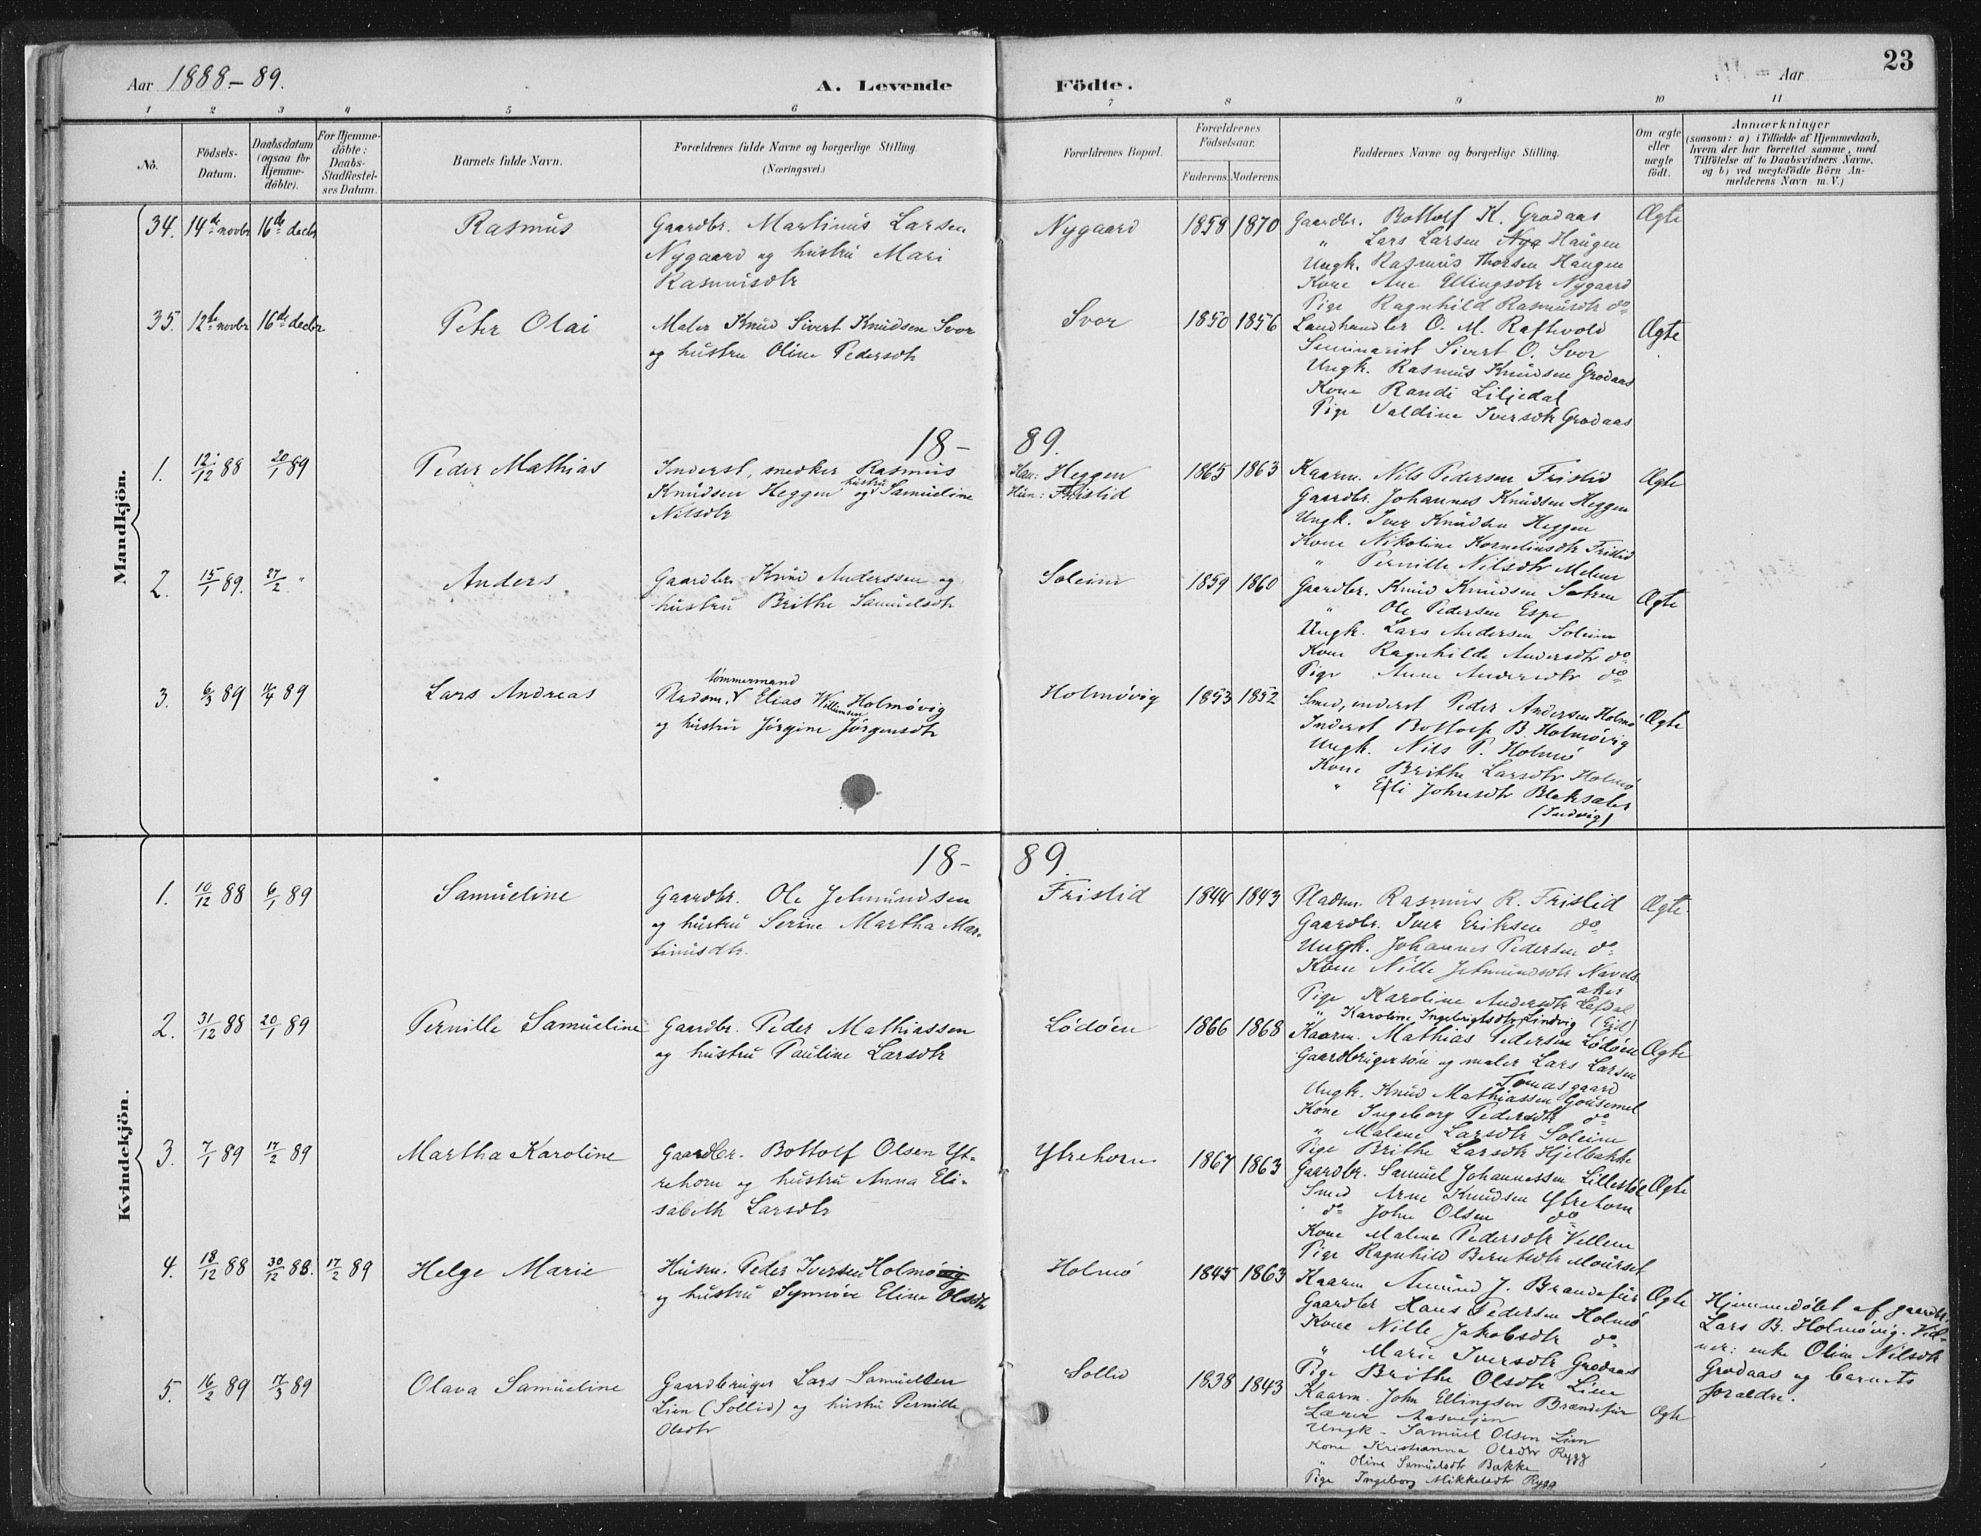 23
Aar 1888-89. A. Levende Födte. Aar
1 2 3 4 5 6 7 8 9 10 11
No.
Födsels-
Datum.
Daabsdatum
(ogsaa for
Hjemme-
döbte).
For Hjemme-
döbte:
Daabs-
Stadfæstel-
ses Datum.
Barnets fulde Navn.
Forældrenes fulde Navne og borgerlige Stilling.
(Næringsvei.)
Forældrenes Bopæl.
Forældrenes
Födselsaar.
Faderens. Moderens.
Faddernes Navne og borgerlige Stilling.
Om ægte
eller
uægte
födt.
Anmærkninger
(saasom: a) i Tilfælde af Hjemmedaab,
hvem der har forrettet samme, med
Tilföielse af to Daabsvidners Navne,
og b) ved uægtefödte Börn An-
melderens Navn m. V.)
Mandkjön.
34. 14de novbr 16de decbr Rasmus
Gaardbr. Martinus Larsen
Nygaard og hustru Mari
Rasmusdtr
Nygaard 1858 1870
Gaardbr. Bottolf K. Grodaas
" Lars Larsen Nyg Haugen
Ungk. Rasmus Thorsen Haugen
Kone Ane Ellingsdtr Nygaard
Pige Ragnhild Rasmusdtr do
Ægte
35. 12te novbr 16de decbr Pehr Olai
Maler Knud Sivert Knudsen Svor
og hustru Oline Pedersdtr
Svor 1850 1856
Landhandler O. M. Raftevold
Seminarist Sivert O. Svor
Ungk. Rasmus Knudsen Grodaas
Kone Randi Liljedal
Pige Valdine Iversdtr Grodaas
Ægte
18- 89.
1. 12/12 88 20/1 89 Peder Mathias
Inderst, snedker Rasmus
Knudsen Heggen og hustru Samueline
Nilsdtr
Han: Heggen
Hun: Fristid
1865 1863
Kaarm. Nils Pedersen Fristid
Gaardbr. Johannes Knudsen Heggen
Ungk. Iver Knudsen Heggen
Kone Nikoline Korneliusdtr Fristid
" Pernille Nilsdtr Melur
Ægte
2. 15/1 89. 27/2 " Anders
Gaardbr. Knud Anderssen og
hustru Brithe Samuelsdtr
Soleim 1859 1860
Gaardbr. Knud Knudsen Sætren
" Ole Pedersen Espe
Ungk. Lars Andersen Soleim
Kone Ragnhilde Andersdtr do
Pige Anne Andersdtr do
Ægte
3. 6/3 89 14/4 89 Lars Andreas
tømmermand
Pladsm. V Elias Willumsen Holmøvig
og hustru Jørgine Jørgensdtr
Holmøvig 1853 1852
Smed, inderst Peder Andersen Holmø
Inderst Bottolf B. Holmøvig
Ungk. Nils P. Holmø
Kone Brithe Larsdtr Holmø
" Eli Johnsdtr Bleksæter
(Indvig)
Ægte
Kvindekjön.
18- 89.
1. 10/12 88 6/1 89 Samueline
Gaardbr. Ole Jetmundsen
og hustru Serine Martha Mar-
tinusdtr.
Fristid 1844 1843
Pladsm. Rasmus R. Fristid
Gaardbr. Iver Eriksen do
Ungk. Johannes Pedersen do
Kone Nille Jetmundsdtr Navels-
aker
Pige Karoline Andersdtr Lefdal
" Karoline Ingebrigtsdtr Lindvig (Eid)
Ægte.
2. 31/12 88 20/1 89 Pernille Samueline
Gaardbr. Peder Mathiassen
og hustru Pauline Larsdtr
Lødøen 1866 1868
Kaarm. Mathias Pedersen Lødøen
Gaardbrugersøn og maler Lars Larsen
Tomasgaard
Ungk. Knud Mathiassen Gousemel
Kone Ingeborg Pedersdtr do
" Malene Larsdtr Soleim
Pige Brithe Larsdtr Hjelbakke
Ægte
3. 7/1 89 17/2 89 Martha Karoline
Gaardbr. Bottolf Olsen Yt-
rehorn og hustru Anna Eli-
sabeth Larsdtr
Ytrehorn 1867 1863
Gaardbr. Samuel Johannessen Lillestøl
Smed Arne Knudsen Ytrehorn
do John Olsen do
Kone Malene Pedersdtr Vellem
Pige Ragnhild Berntsdtr Mourset
Ægte
4. 18/12 88 30/12 88. 17/2 89 Helge Marie
Husm. Peder Iversen Holmøvig
og hustru Synnøve Eline Olsdtr
Holmø 1845 1863
Kaarm Amund J. Brandefur
Gaardbr Hans Pedersen Holmø
Kone Nille Jakobsdtr do
" Marie Iversdtr Grodaas
Pige Brithe Olsdtr Lien
Ægte
Hjemmedøbt af gaardbr.
Lars B. Holmøvig. Vid-
ner: enke Oline Nilsdtr
Grodaas og barnets
forældre.
5. 16/2 89 17/3 89 Olava Samueline
Gaardbruger Lars Samuelsen
Lien (Sollid) og hustru Pernille
Olsdtr
Sollid 1838 1843
Kaarm. John Ellingsen Brandefur
Lærer Aasvejen
Ungk - Samuel Olsen Lien
Kone Kristianna Olsdtr Rygg
" Oline Samuelsdtr Bakke
Pige Ingeborg Mikkelsdtr Rygg
Ægte